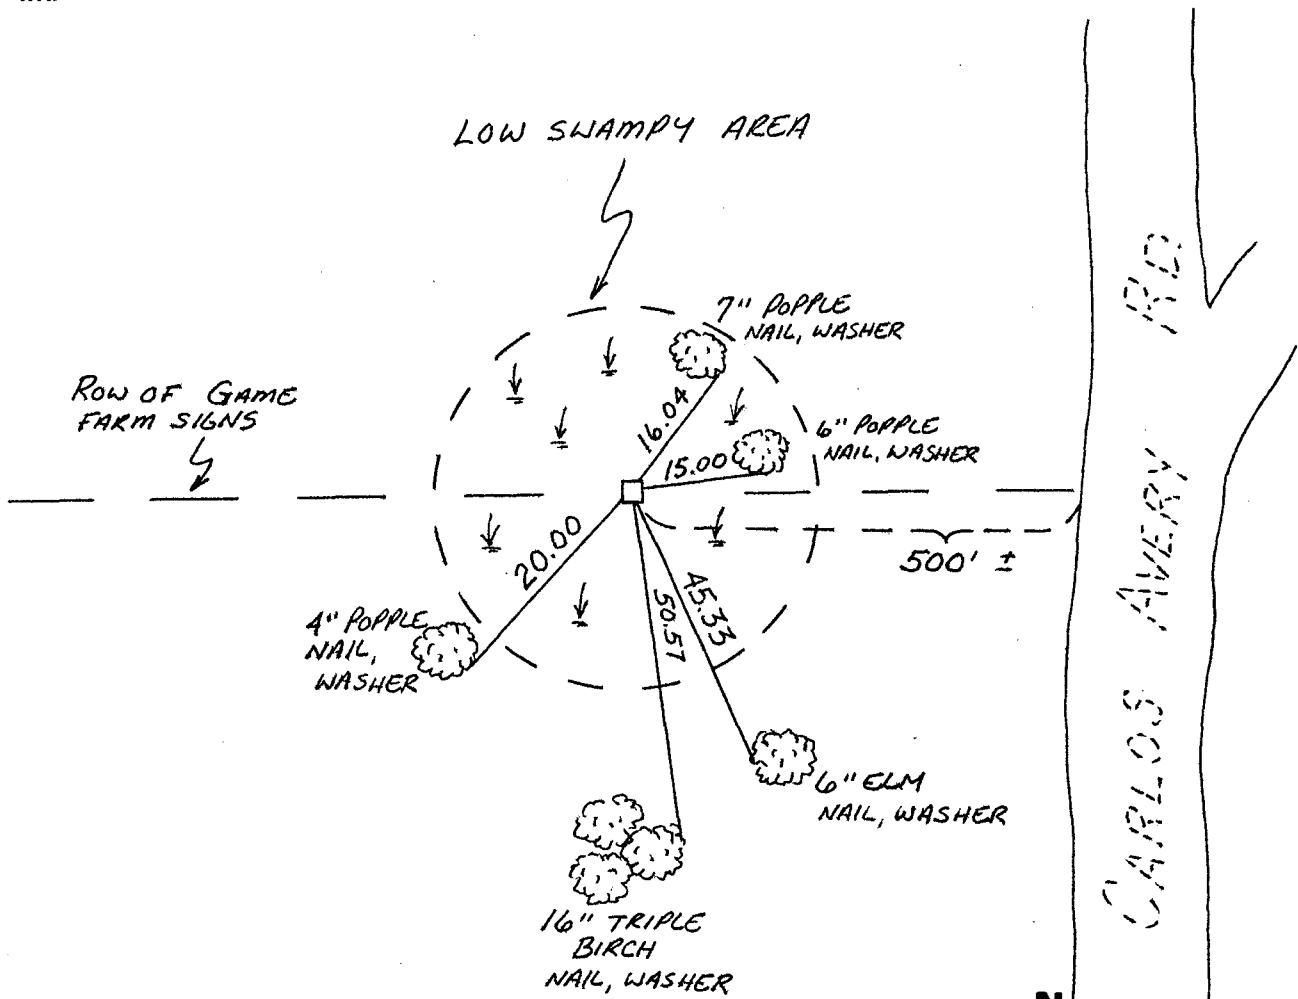 LOW SWAMPY AREA
7" POPPLE
NAIL, WASHER
ROW OF GAME
FARM SIGNS
16.04
6" POPPLE
NAIL, WASHER
15.00
20.00
500' ±
45.33
50.57
4" POPPLE
NAIL,
WASHER
6" ELM
NAIL, WASHER
16" TRIPLE
BIRCH
NAIL, WASHER
CARLOS AVERY RD
N